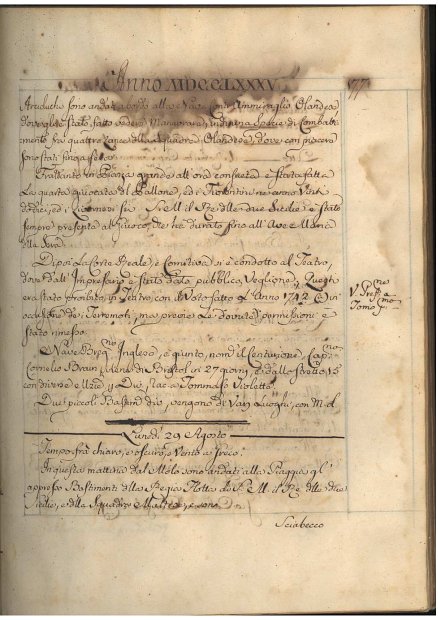 Anno MDCCLXXXV. 77
Arciduchi sono andati a bordo alla Nave Contr'Ammiraglio Olandese
dove gl'è stato fatto vedere Manovrare, ed una specie di Combatti-
mento frà quattro della Squadra Olandese, dove con piacere
sono stati fino a sera.
Frattanto in Potenza quando all'ore consuete è stata fatta
La quarta giuocata di Pallone, ed i Fiorentini ne ebbero
dodici, ed i Livornesi Sei. S. M. il Re delle due Sicilie è stato
sempre presente al Giuoco, che hà durato fino all'Ave Maria
della Sera.
Dipoi La Corte Reale, e Comitiva si è condotta al Teatro,
dove dall'Impresario è stata data pubblica Veglione, quale
era stato proibito in Teatro, con il Voto fatto L'Anno 1742. in
occasione de Terremoti, ma previe Le dovute permissioni è
stato rimesso.
V.
Tomo
Nave Inglese, è giunto, nom. il Centurione, Cap.no
Cornelio Brain, viene di Bristol in 27 giorni, e dallo Stretto 15
con diverse Mercì, Due, Rac. a Tommaso Violetti.
Due piccoli Bastim.ti vengono di Varj Luoghi, con M.el
Lunedì 29 Agosto
Tempo frà chiaro, e oscuro, e Vento a Greco.
In questa mattina dal Molo sono andati alla Spiaggia gl'
appresso Bastimenti della Regia Flotta di S. M. il Re delle due
Sicilie, e della Squadra Maltese, e sono
Sciabecco